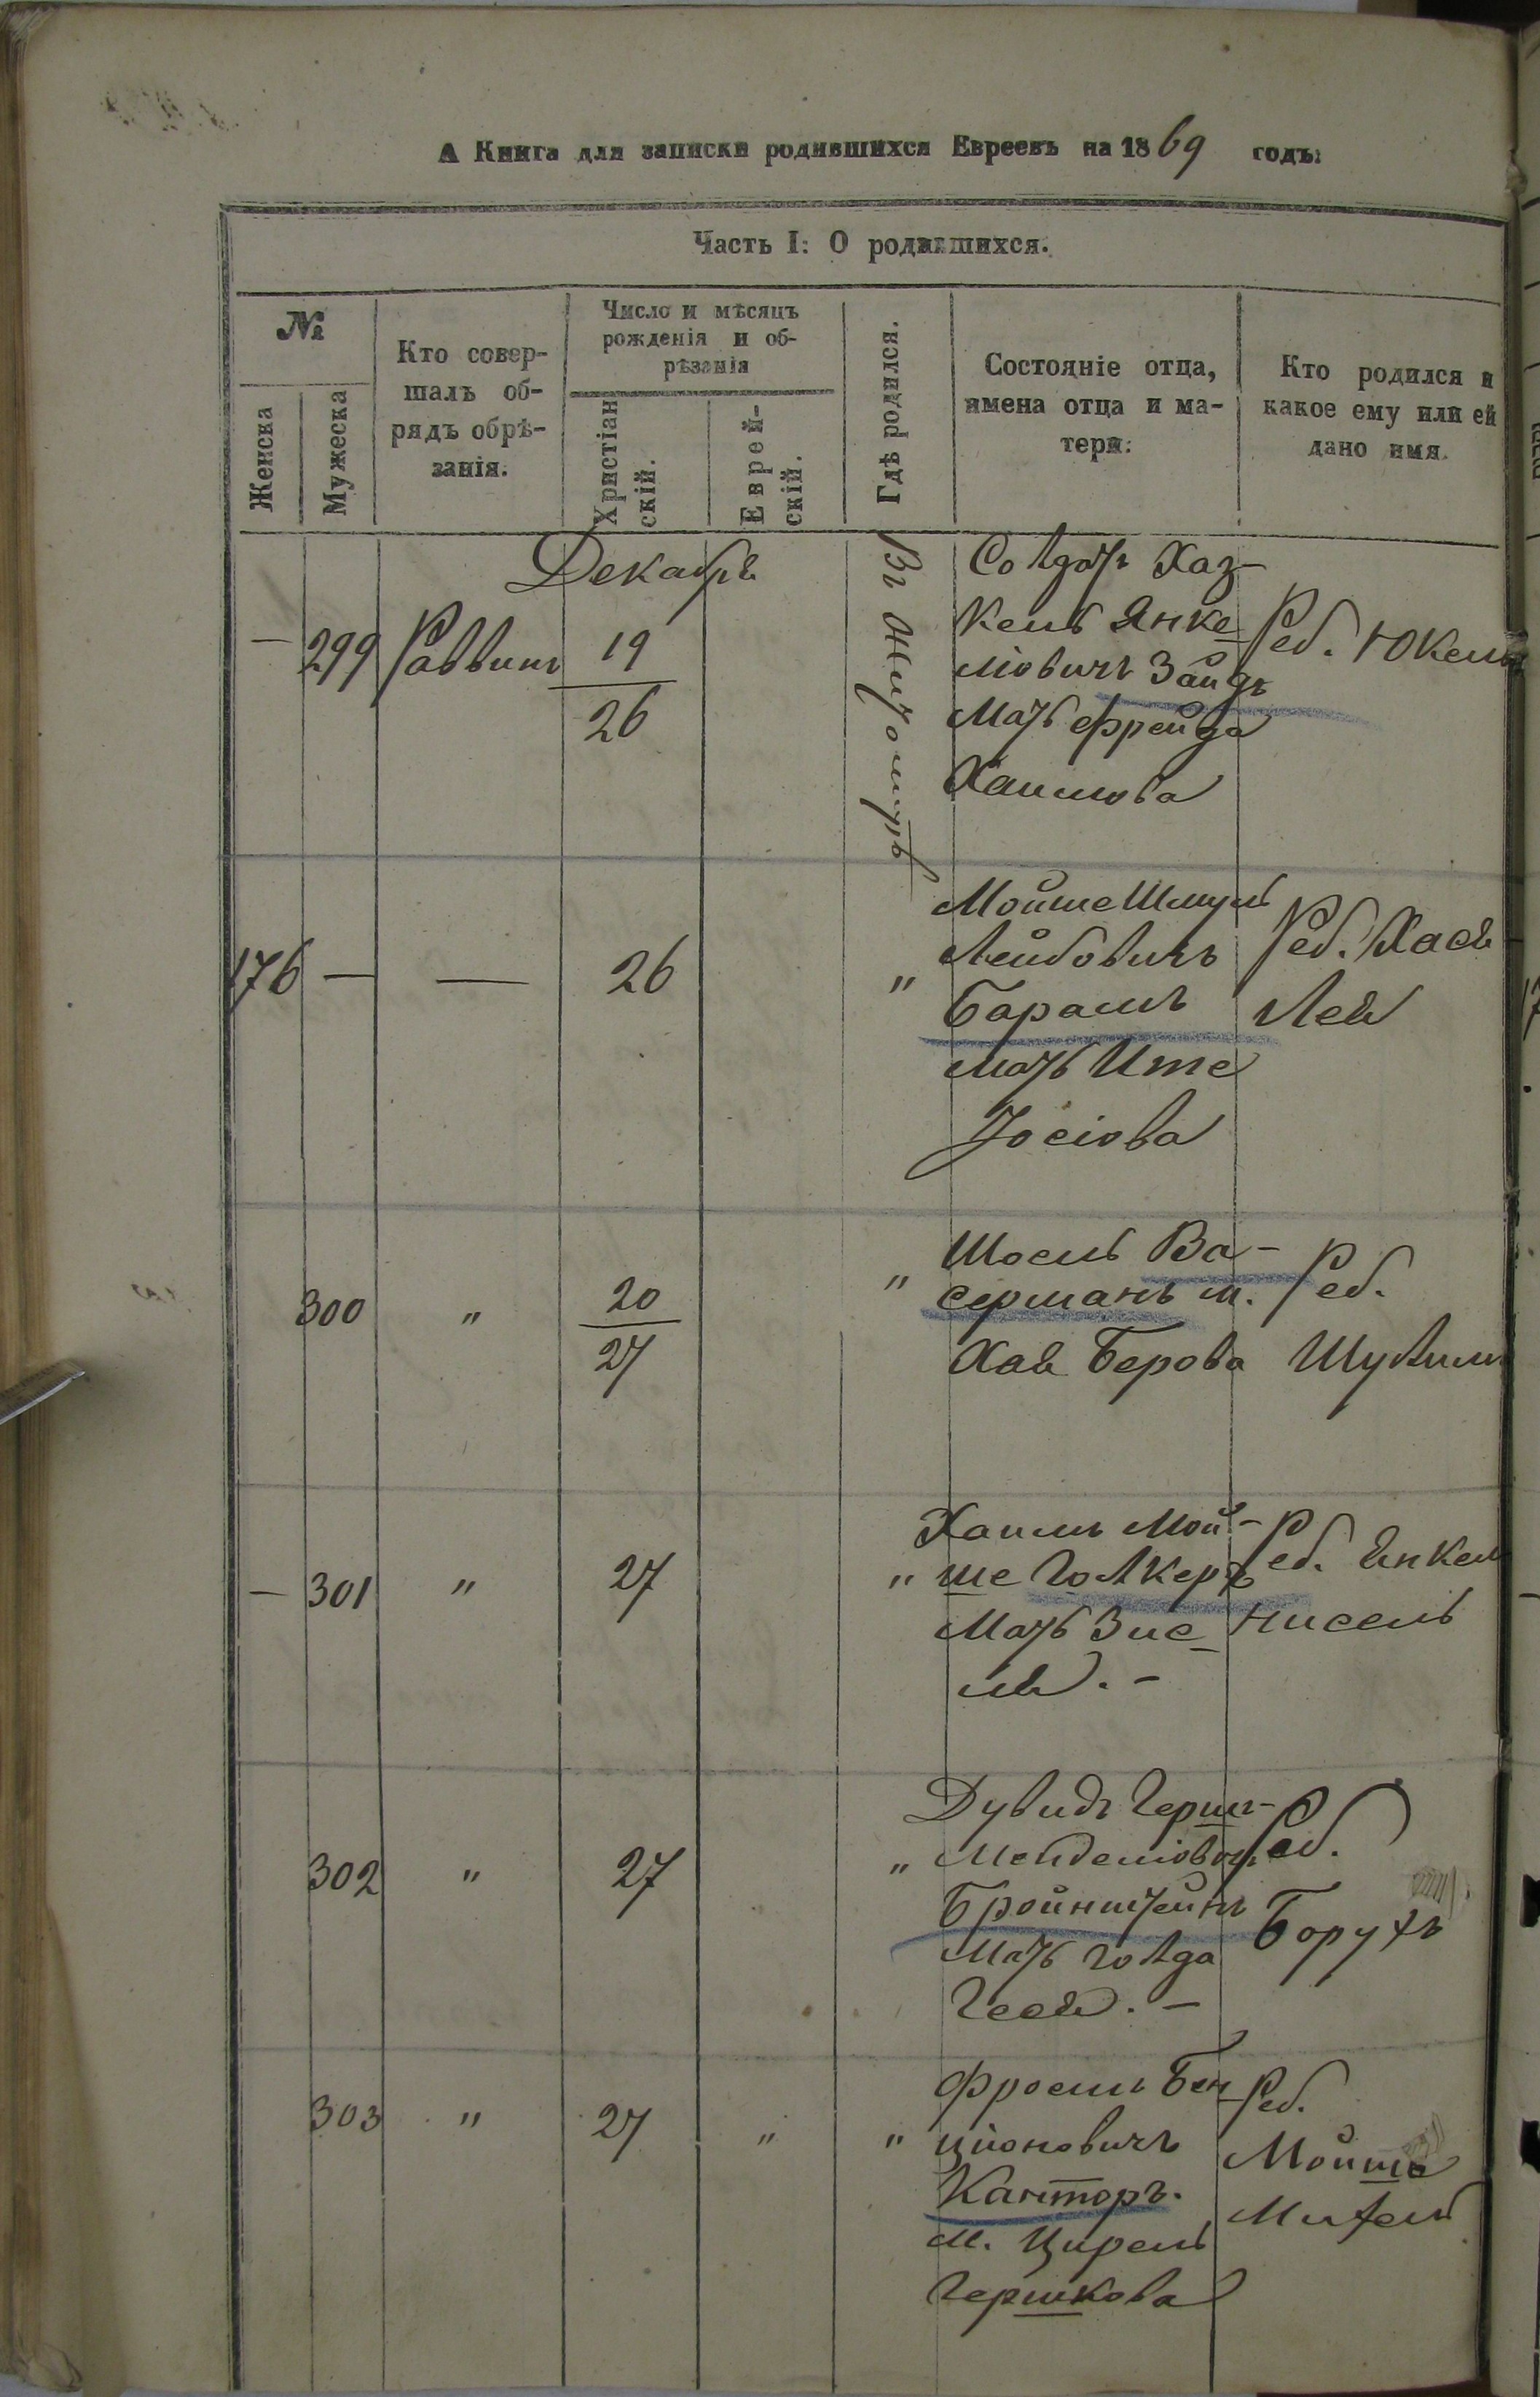 А Книга для записки родившихся Евреевъ на 1869 годъ:
Часть I: О родившихся.
№
Женска
Мужеска
Кто совер-
шалъ об-
рядъ обрѣ-
занія.
Число и мѣсяцъ
рожденія и об-
рѣзанія
Христіан
скій.
Еврей-
скій.
Гдѣ родился.
Состояніе отца,
имена отца и ма-
тери:
Кто родился и
какое ему или ей
дано имя.
Декабря
— 299 Раввинъ 19
26
Въ Житомирѣ
Солдатъ Хаз-
кель Янке
ліовичъ Зайдъ
Мать Фрейда
Хаимова
Реб. Юкель
176 — — 26 "
Мойше Шмуль
Лейбовичъ
Барашъ
мать Ите
Іосіова
Реб. Хася
Лея
300 " 20
27
"
Шоель Ва-
серманъ м.
Хая Берова
Реб.
— 301 " 27 "
Хаимъ Мой-
ше Голкеръ
Мать Зис
ля. —
Реб. Янкель
Нисель
302 " 27 "
Дувидъ Герш-
Менделіовичъ
Бройнштейнъ
Мать Голда
Реб.
Борухъ
303 " 27 " "
Фроемъ Бен
ціоновичъ
Канторъ.
м. Цирель
Гершкова
Реб.
Мойше
Михель